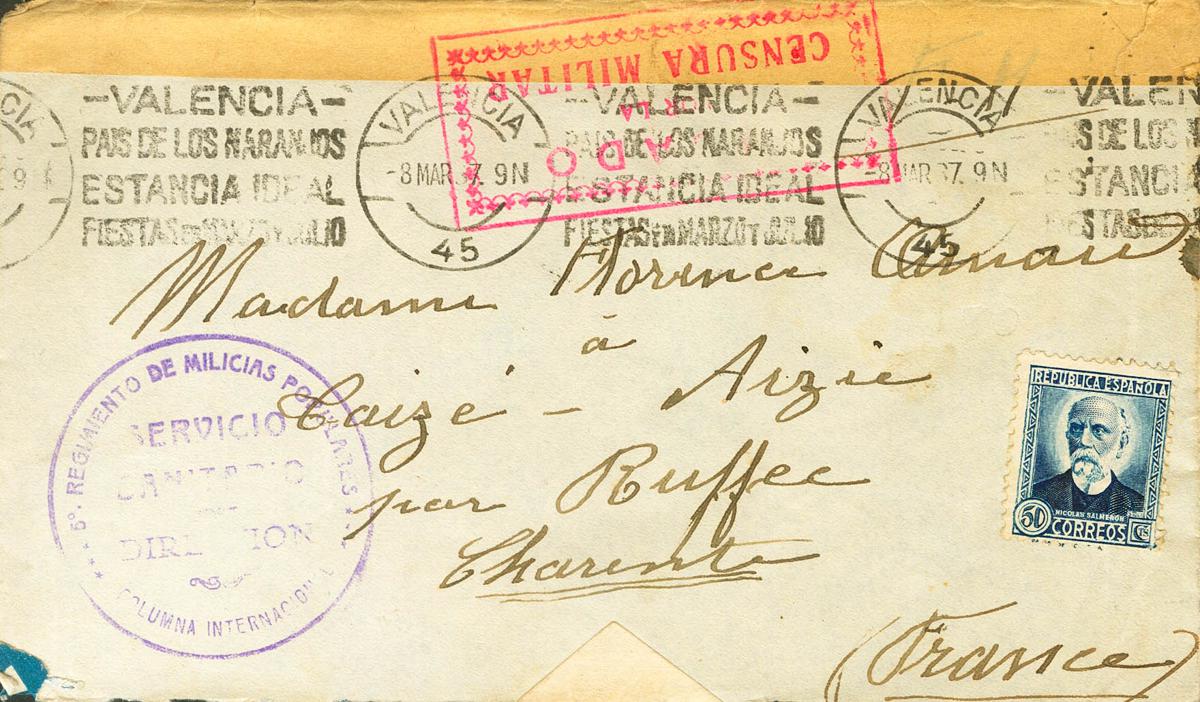 CENSURA MILITAR
POR LA
ADO
-VALENCIA-
PAIS DE LOS NARANJOS
ESTANCIA IDEAL
FIESTAS EN MARZO Y JULIO
VALENCIA
-8 MAR 37. 9N
45
-VALENCIA-
PAIS DE LOS NARANJOS
ESTANCIA IDEAL
FIESTAS EN MARZO Y JULIO
VALENCIA
-8 MAR 37. 9N
45
VALEN
IS DE LOS N
STANCIA
Madame Florence Arnau
à
Caizé - Aizie
par Ruffec
Charente
(France)
REPUBLICA ESPAÑOLA
NICOLAS SALMERON
50 CORREOS CTS
5º. REGIMIENTO DE MILICIAS POPULARES
SERVICIO
SANITARIO
DIRECCION
COLUMNA INTERNACIONAL